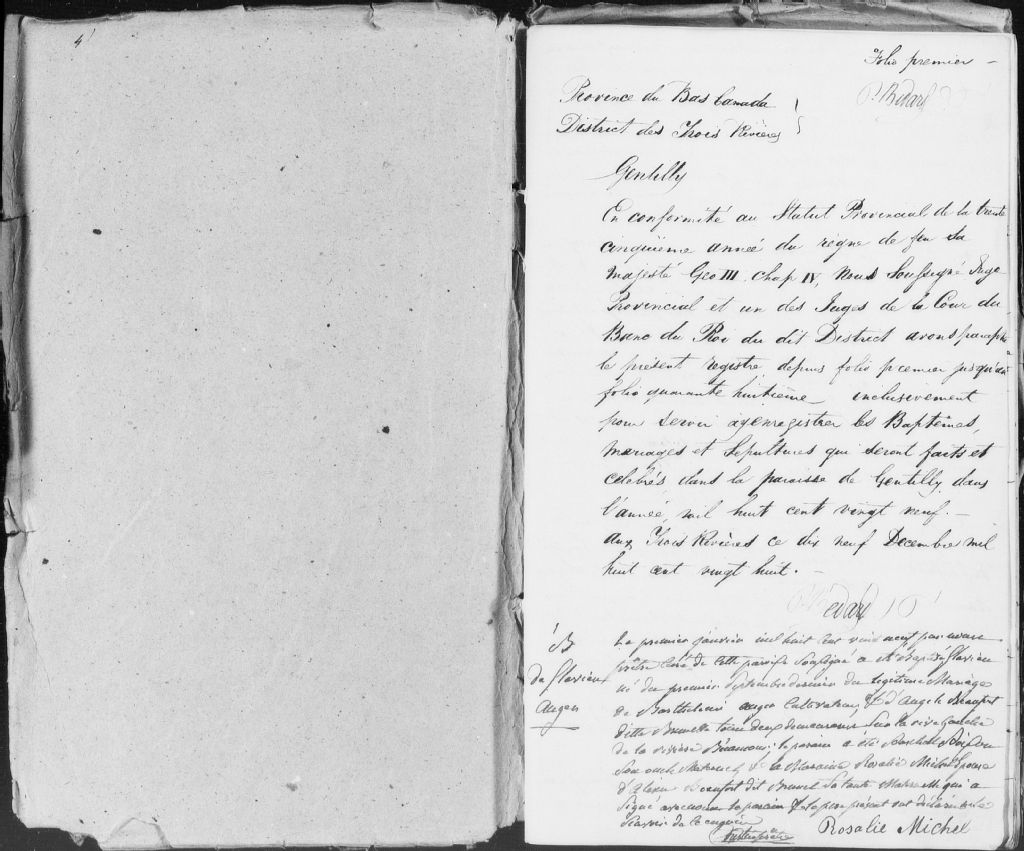 4
Folio premier —
P. Bedard
Province du Bas Canada
District des Trois Rivières
Gentilly
En conformité au Statut Provincial de la trente
cinquième année du règne de feu Sa
Majesté Geo III. Chap IV, Nous Soussigné Juge
Provincial et un des Juges de la Cour du
Banc du Roi du dit District avons paraphé
le présent registre depuis folio premier jusqu'au
folio quarante huitième inclusivement
pour servir à y enregistrer les Baptêmes,
Mariages et Sépultures qui seront faits et
celebrés dans la paroisse de Gentilly dans
l'année mil huit cent vingt neuf. —
aux Trois Rivières ce dix neuf Decembre mil
huit cent vingt huit. —
P. Bedard
B
de Flavien
Auger
Le premier janvier mil huit cent vint neuf par nous
prêtre Curé de cette paroisse Soussigné a été Baptisé Flavien
né du premier Septembre dernier du legitime Mariage
de Barthelemi auger Cultivateur, & d'Angele Beaufort
ditte Brunelle tous deux demeurans Sur la rive Gauche
de la rivière le parain a été
Son oncle Maternel & la Maraine Rosalie Michel Epouse
d' Beaufort dit Brunel Sa tante Maternelle qui a
Signé avec nous le parain & le pere présent ont déclaré ne
Savoir de ce enquis
Rosalie Michel